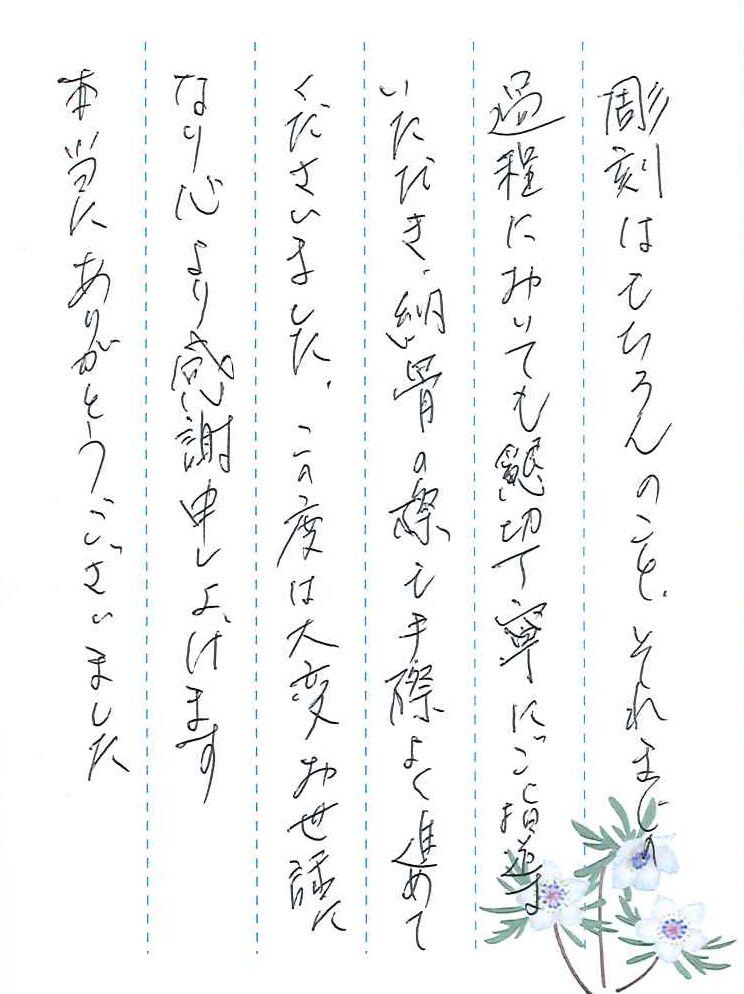 彫刻はもちろんのこと、それまでの
過程においても懇切丁寧にご指導
いただき、納骨の際も手際よく進めて
くださいました。この度は大変お世話に
なり心より感謝申し上げます
本当にありがとうございました